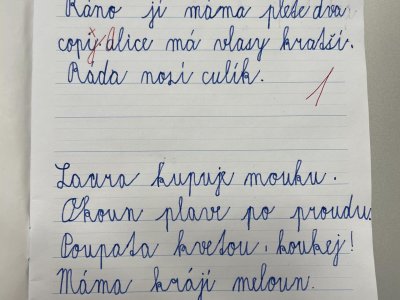 Ráno jí máma plete dva
copy. Alice má vlasy kratší.
Ráda nosí culík.
1
Laura kupuje mouku.
Okoun plave po proudu.
Poupata kvetou, koukej!
Máma krájí meloun.